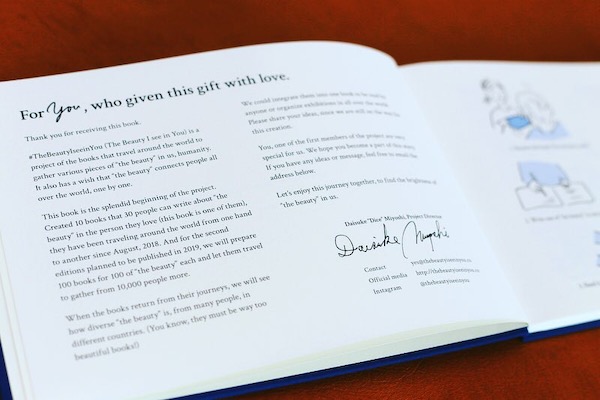 For You, who given this gift with love.
Thank you for receiving this book.
#TheBeautyIseeinYou (The Beauty I see in You) is a
project of the books that travel around the world to
gather various pieces of "the beauty" in us, humanity.
It also has a wish that "the beauty" connects people all
over the world, one by one.
This book is the splendid beginning of the project.
Created 10 books that 30 people can write about "the
beauty" in the person they love (this book is one of them),
they have been traveling around the world from one hand
to another since August, 2018. And for the second
editions planned to be published in 2019, we will prepare
100 books for 100 of "the beauty" each and let them travel
to gather from 10,000 people more.
When the books return from their journeys, we will see
how diverse "the beauty" is, from many people, in
different countries. (You know, they must be way too
beautiful books!)
We could integrate them into one book to be
anyone or organize exhibitions in all over the world.
Please share your ideas, since we are still on the way
this creation.
You, one of the first members of the project are very
special for us. We hope you become a part of this story.
If you have any ideas or message, feel free to email the
address below.
Let's enjoy this journey together, to find the brightness of
"the beauty" in us.
Daisuke "Dice" Miyoshi, Project Director
Daisuke Miyoshi
Contact
Official media
Instagram